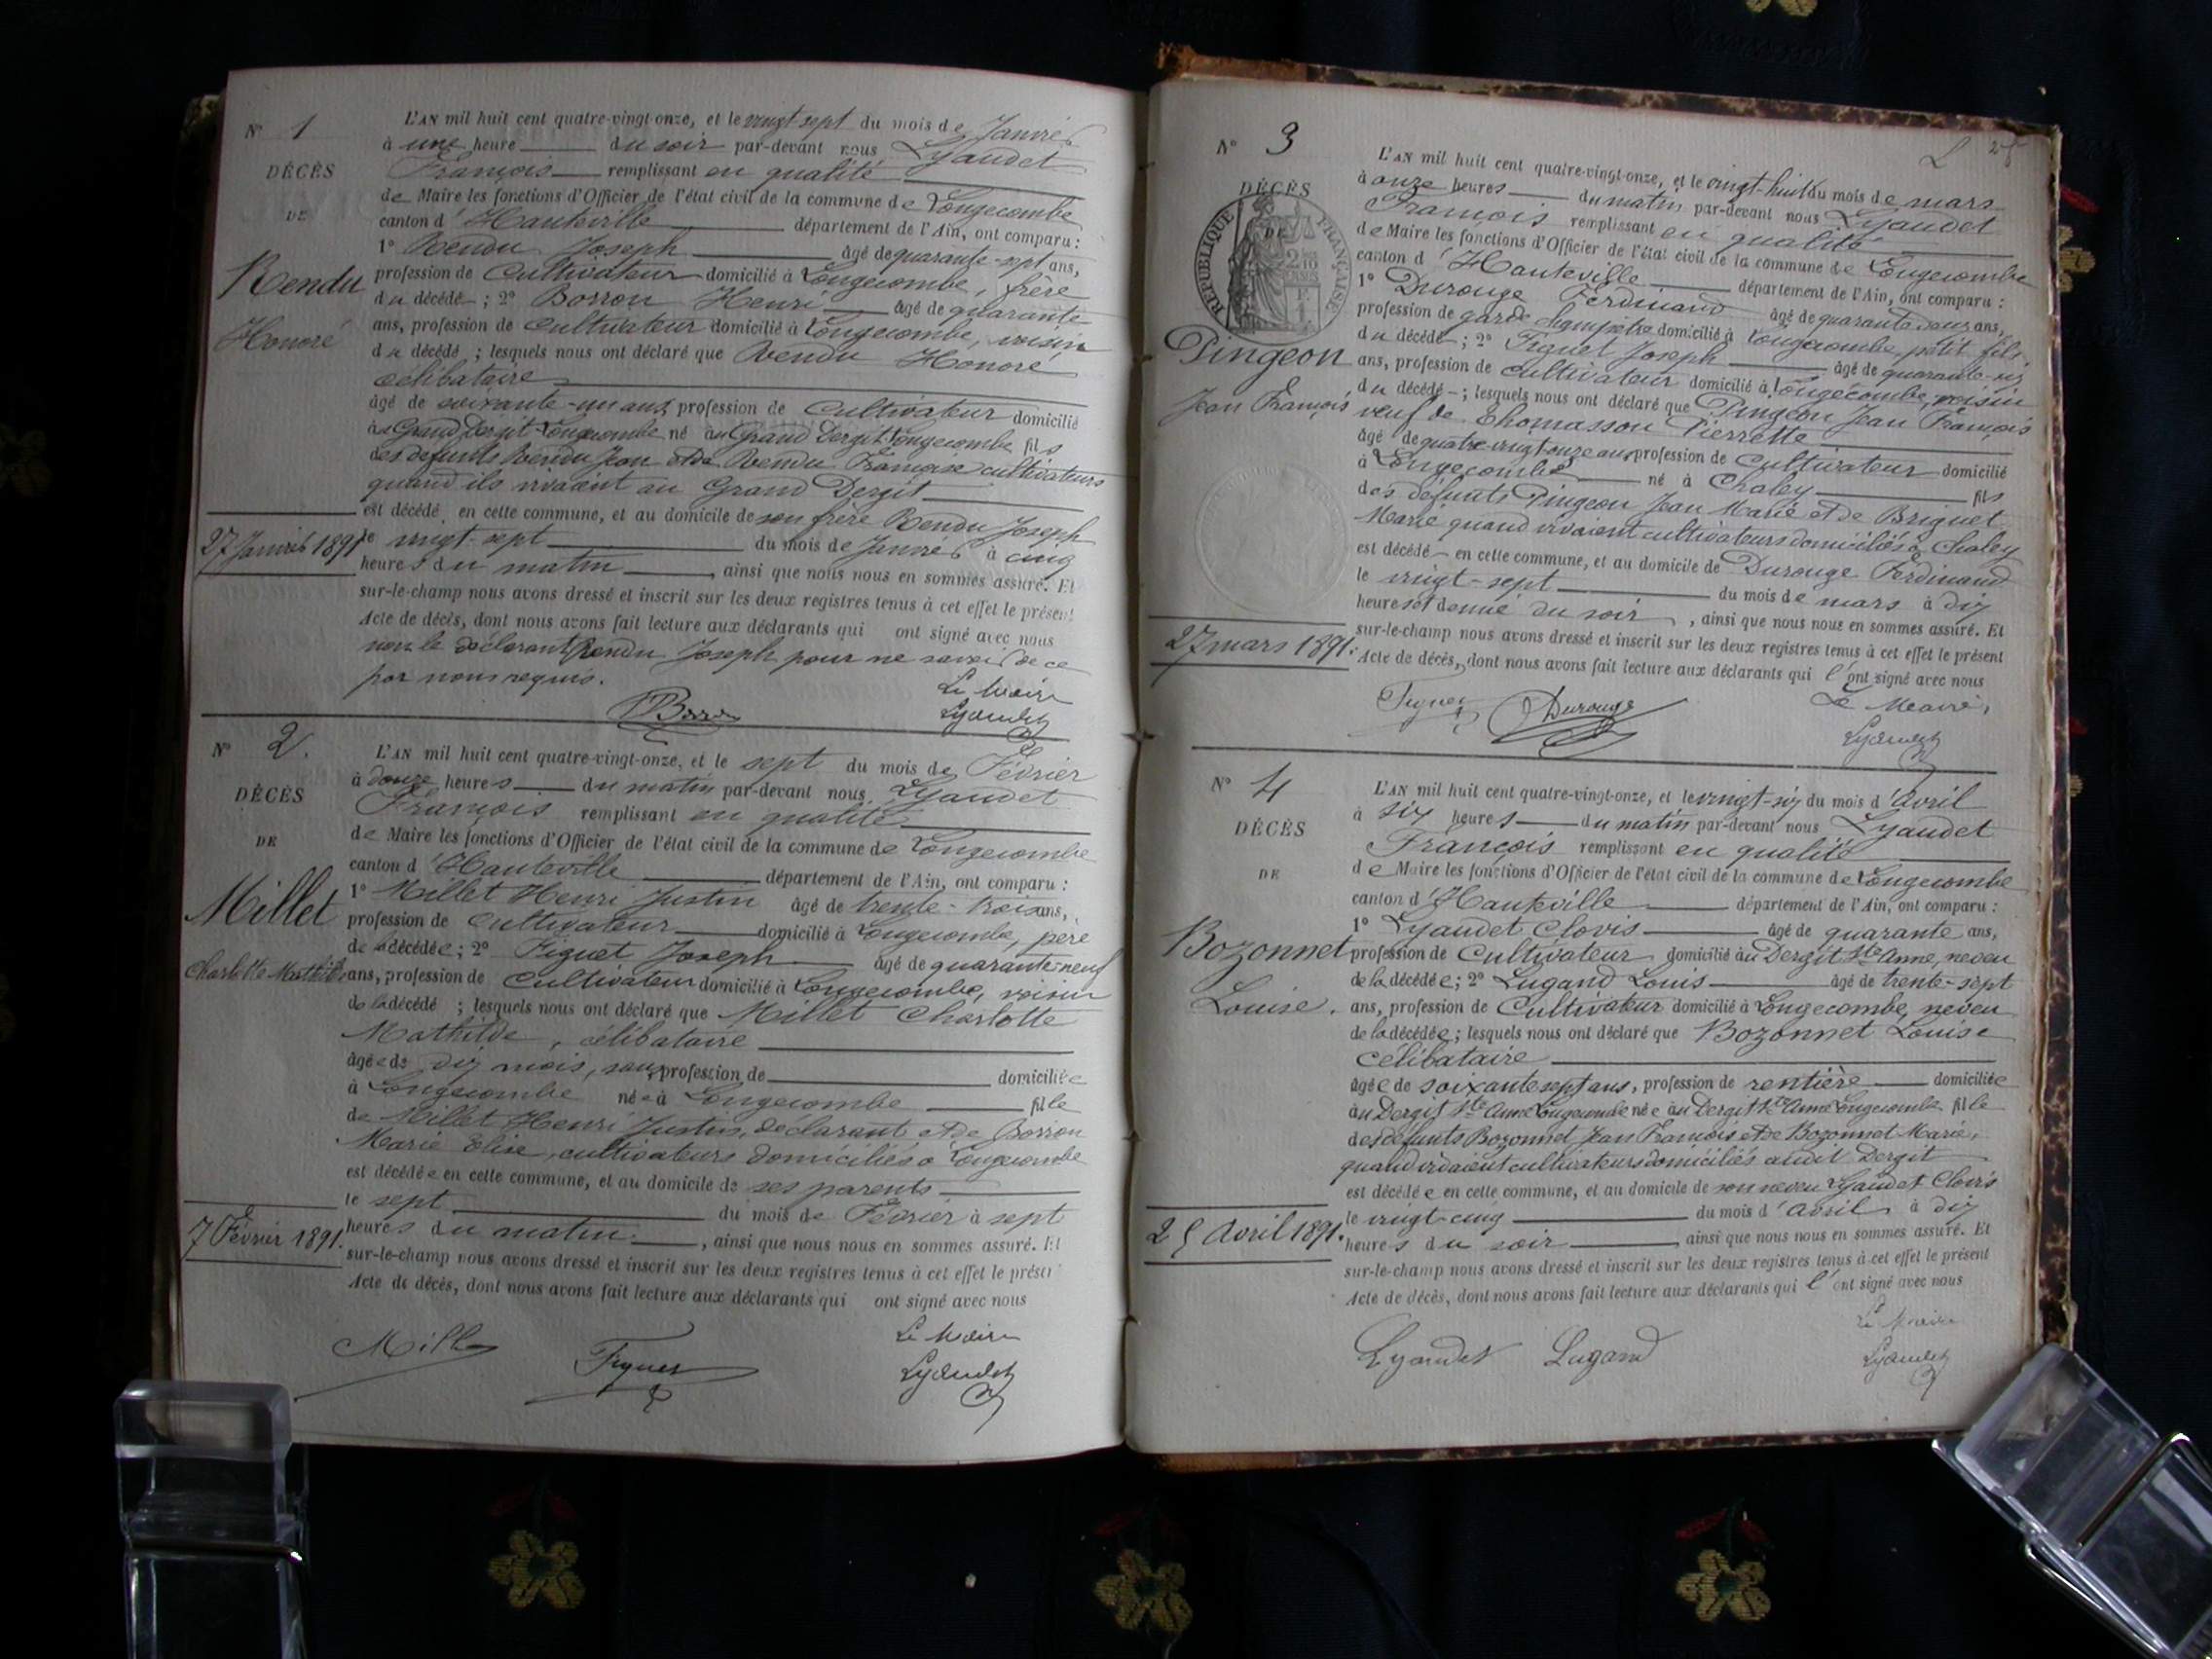 N° 1
DÉCÈS
DE
Rendu
Honoré
27 Janvier 1891
L'AN mil huit cent quatre-vingt-onze, et le vingt sept du mois de Janvier
à une heure du soir par-devant nous Lyaudet
François remplissant en qualité
de Maire les fonctions d'Officier de l'état civil de la commune de Longecombe
canton d'Hauteville département de l'Ain, ont comparu :
1° Rendu Joseph âgé de quarante-sept ans,
profession de Cultivateur domicilié à Longecombe, frère
du décédé ; 2° Borron Henri âgé de quarante
ans, profession de Cultivateur domicilié à Longecombe, voisin
du décédé ; lesquels nous ont déclaré que Rendu Honoré
célibataire
âgé de soixante-un ans, profession de Cultivateur domicilié
au Grand Dergit Longecombe né au Grand Dergit Longecombe fils
des défunts Rendu Jean et de Rendu Françoise cultivateurs
quand ils vivaient au Grand Dergit
est décédé en cette commune, et au domicile de son frère Rendu Joseph
le vingt-sept du mois de Janvier à cinq
heures du matin, ainsi que nous nous en sommes assuré. Et
sur-le-champ nous avons dressé et inscrit sur les deux registres tenus à cet effet le présent
Acte de décès, dont nous avons fait lecture aux déclarants qui ont signé avec nous
non le déclarant Rendu Joseph pour ne savoir de ce
par nous requis.
Le Maire
Lyaudet
N° 2.
DÉCÈS
DE
Millet
Charlotte Mathilde
7 Février 1891.
L'AN mil huit cent quatre-vingt-onze, et le sept du mois de Février
à douze heures du matin par-devant nous Lyaudet
François remplissant en qualité
de Maire les fonctions d'Officier de l'état civil de la commune de Longecombe
canton d'Hauteville département de l'Ain, ont comparu :
1° Millet Henri Justin âgé de trente-trois ans,
profession de Cultivateur domicilié à Longecombe, père
de la décédée ; 2° Figuet Joseph âgé de quarante-neuf
ans, profession de Cultivateur domicilié à Longecombe, voisin
de la décédé ; lesquels nous ont déclaré que Millet Charlotte
Mathilde, célibataire
âgée de dix mois, sans profession de domiciliée
à Longecombe née à Longecombe fille
de Millet Henri Justin, déclarant et de Borron
Marie Elise, cultivateurs domiciliés à Longecombe
est décédée en cette commune, et au domicile de ses parents
le sept du mois de Février à sept
heures du matin, ainsi que nous nous en sommes assuré. Et
sur-le-champ nous avons dressé et inscrit sur les deux registres tenus à cet effet le présent
Acte de décès, dont nous avons fait lecture aux déclarants qui ont signé avec nous
Le Maire
Millet Figuet Lyaudet
N° 3
DÉCÈS
DE
RÉPUBLIQUE FRANÇAISE
Pingeon
Jean François
27 mars 1891.
L'AN mil huit cent quatre-vingt-onze, et le vingt-huit du mois de mars
à onze heures du matin par-devant nous Lyaudet
François remplissant en qualité
de Maire les fonctions d'Officier de l'état civil de la commune de Longecombe
canton d'Hauteville département de l'Ain, ont comparu :
1° Durouge Ferdinand âgé de quarante deux ans,
profession de garde champêtre domicilié à Longecombe, petit fils
du décédé ; 2° Figuet Joseph âgé de quarante-six
ans, profession de cultivateur domicilié à Longecombe, voisin
du décédé ; lesquels nous ont déclaré que Pingeon Jean François
veuf de Thomasson Pierrette
âgé de quatre-vingt onze ans profession de Cultivateur domicilié
à Longecombe né à Chaley fils
des défunts Pingeon Jean Marie et de Briguet
Marie quand vivaient cultivateurs domiciliés à Chaley
est décédé en cette commune, et au domicile de Durouge Ferdinand
le vingt-sept du mois de mars à dix
heures et demie du soir, ainsi que nous nous en sommes assuré. Et
sur-le-champ nous avons dressé et inscrit sur les deux registres tenus à cet effet le présent
Acte de décès, dont nous avons fait lecture aux déclarants qui l'ont signé avec nous
Figuet Durouge Le Maire,
Lyaudet
N° 4
DÉCÈS
DE
Bozonnet
Louise.
25 Avril 1891.
L'AN mil huit cent quatre-vingt-onze, et le vingt-six du mois d'avril
à six heures du matin par-devant nous Lyaudet
François remplissant en qualité
de Maire les fonctions d'Officier de l'état civil de la commune de Longecombe
canton d'Hauteville département de l'Ain, ont comparu :
1° Lyaudet Clovis âgé de quarante ans,
profession de Cultivateur domicilié au Dergit Ste Anne, neveu
de la décédée ; 2° Lugand Louis âgé de trente-sept
ans, profession de Cultivateur domicilié à Longecombe, neveu
de la décédée ; lesquels nous ont déclaré que Bozonnet Louise
célibataire
âgée de soixante sept ans, profession de rentière domiciliée
au Dergit Ste Anne Longecombe née au Dergit Ste Anne Longecombe fille
des défunts Bozonnet Jean François et de Bozonnet Marie,
quand vivaient cultivateurs domiciliés audit Dergit
est décédée en cette commune, et au domicile de son neveu Lyaudet Clovis
le vingt-cinq du mois d'avril à dix
heures du soir ainsi que nous nous en sommes assuré. Et
sur-le-champ nous avons dressé et inscrit sur les deux registres tenus à cet effet le présent
Acte de décès, dont nous avons fait lecture aux déclarants qui l'ont signé avec nous
Le Maire
Lyaudet Lugand Lyaudet